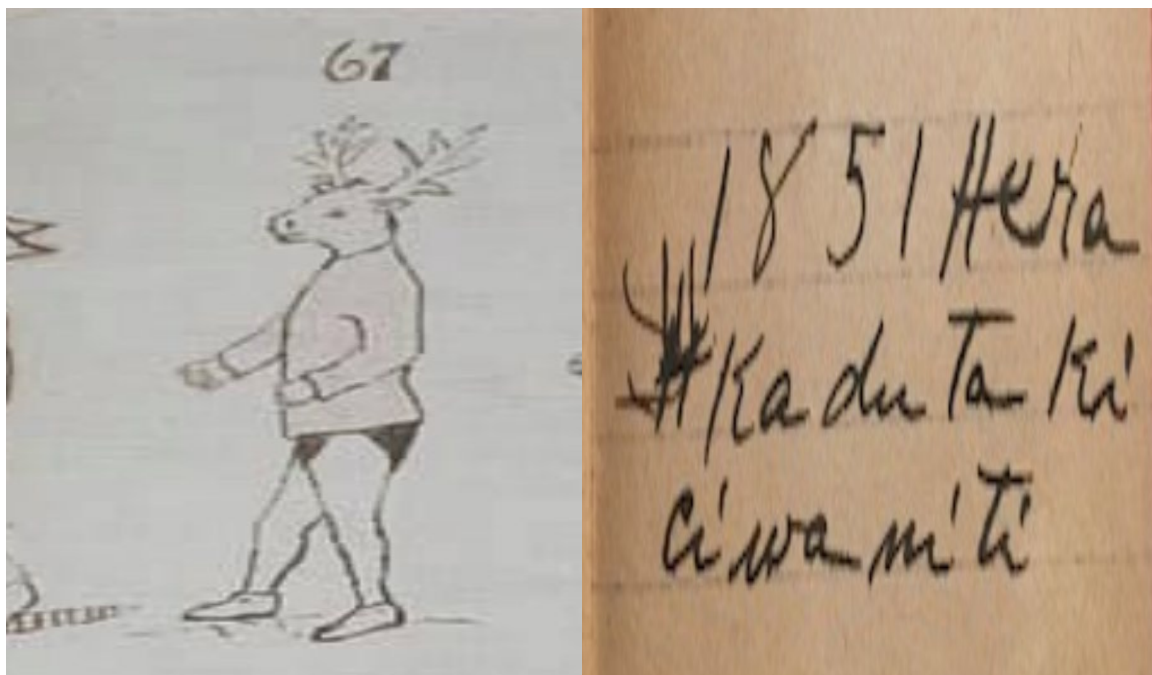 67
1851 Hera
Ka du Ta Ki
ci wa ni Ti